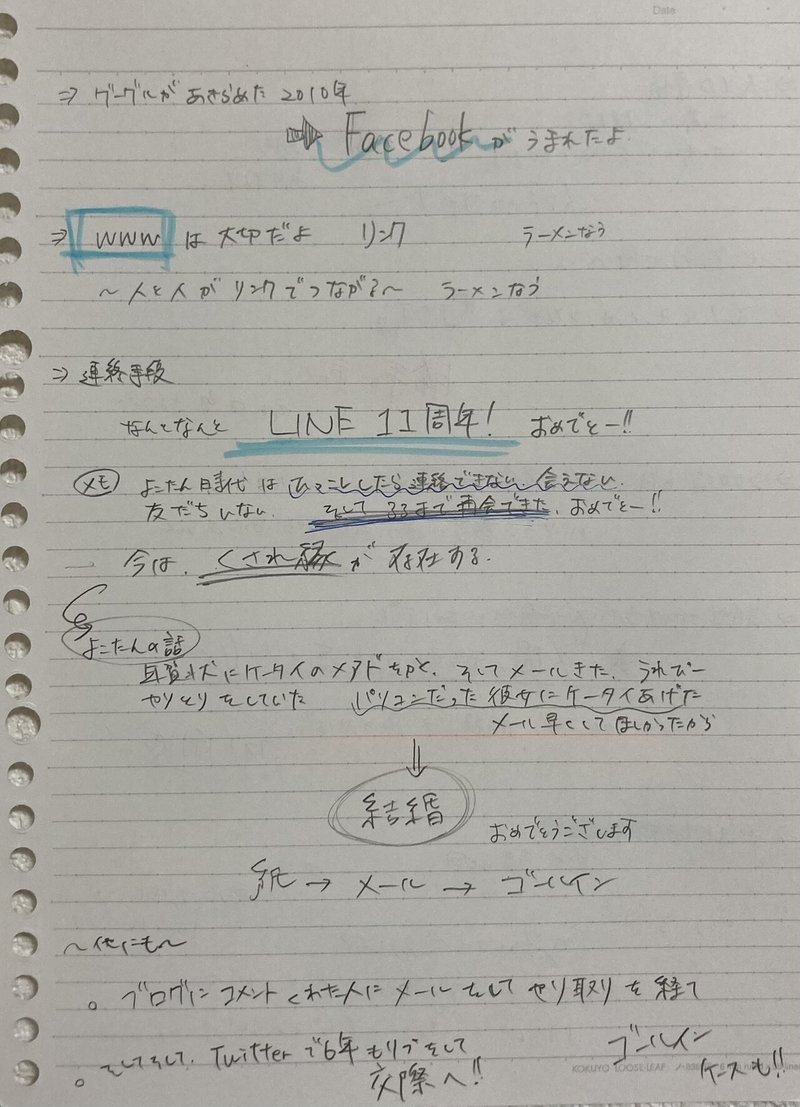 Date
⇒ グーグルがあきらめた 2010年
➡ Facebookが うまれたよ
⇒ www は 大切だよ リンク ラーメンなう
〜人と人が リンクでつながる〜 ラーメンなう
⇒ 連絡手段
なんとなんと LINE 11周年! おめでとー!!
メモ よこたん時代は ひっこししたら連絡できない 会えない
友だちいない. そして まで再会できた. おめでとー!!
今は、くされ縁が 存在する.
よこたんの話
年賀状にケータイのメアドを そしてメールきた、うれぴー
やりとりをしていた パソコンだった彼女にケータイあげた
メール早くしてほしかったから
↓
結婚 おめでとうございます
紙 → メール → ゴールイン
〜他にも〜
。ブログにコメントくれた人に メールをして やり取りを経て
ゴールイン
。そしてそして、Twitterで6年もリプをして
交際へ!! ケースも!!
KOKUYO LOOSE-LEAF